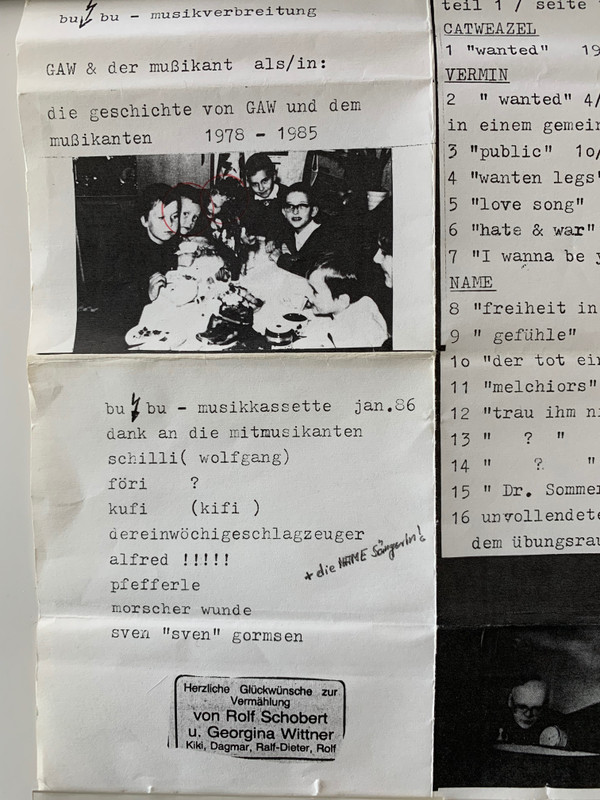 bu bu - musikverbreitung
GAW & der mußikant als/in:
die geschichte von GAW und dem
mußikanten 1978 - 1985
bu bu - musikkassette jan.86
dank an die mitmusikanten
schilli( wolfgang)
föri ?
kufi (kifi )
dereinwöchigeschlagzeuger
alfred !!!!!
+ die NAME SängerIn!
pfefferle
morscher wunde
sven "sven" gormsen
Herzliche Glückwünsche zur
Vermählung
von Rolf Schobert
u. Georgina Wittner
Kiki, Dagmar, Ralf-Dieter, Rolf
teil 1 / seite
CATWEAZEL
1 "wanted" 19
VERMIN
2 " wanted" 4/
in einem gemein
3 "public" 1o/
4 "wanten legs"
5 "love song"
6 "hate & war"
7 "I wanna be
NAME
8 "freiheit in
9 " gefühle"
1o "der tot ein
11 "melchiors"
12 "trau ihm ni
13 " ? "
14 " ? "
15 " Dr. Sommer
16 unvollendete
dem übungsrau